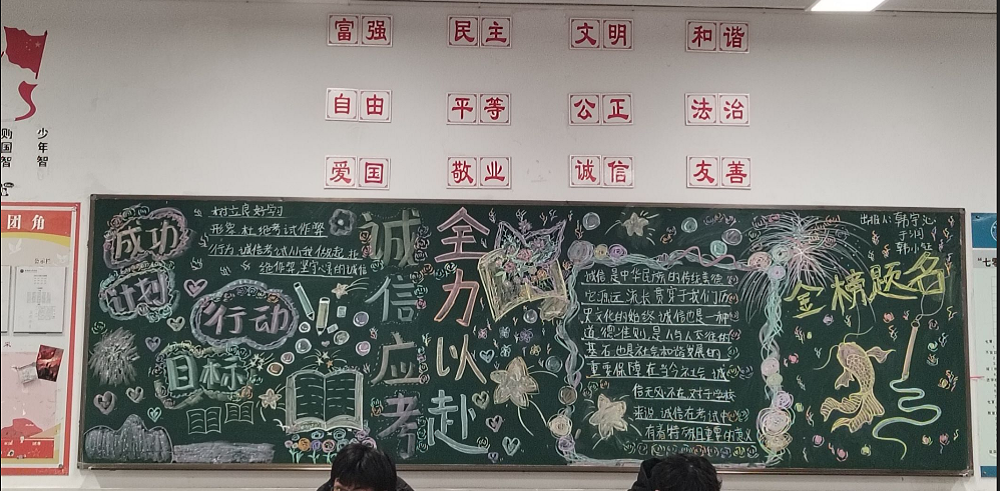 富强 民主 文明 和谐
自由 平等 公正 法治
爱国 敬业 诚信 友善
少年智
国智
团角
公示栏
成功
计划
行动
目标
树立良好学习
形容杜绝考试作弊
行为诚信考试从小我做起
诚信应考
全力以赴
诚信是中华民族的传统美德
它源远流长贯穿于我们历
史文化的始终诚信也是一种
道德准则是人与人交往的
基石也是社会和谐发展的
重要保障在当今社会诚
信无处不在对于学校
来说诚信在考试中
有着特别且重要的意义
金榜题名
出报人:韩宇沁